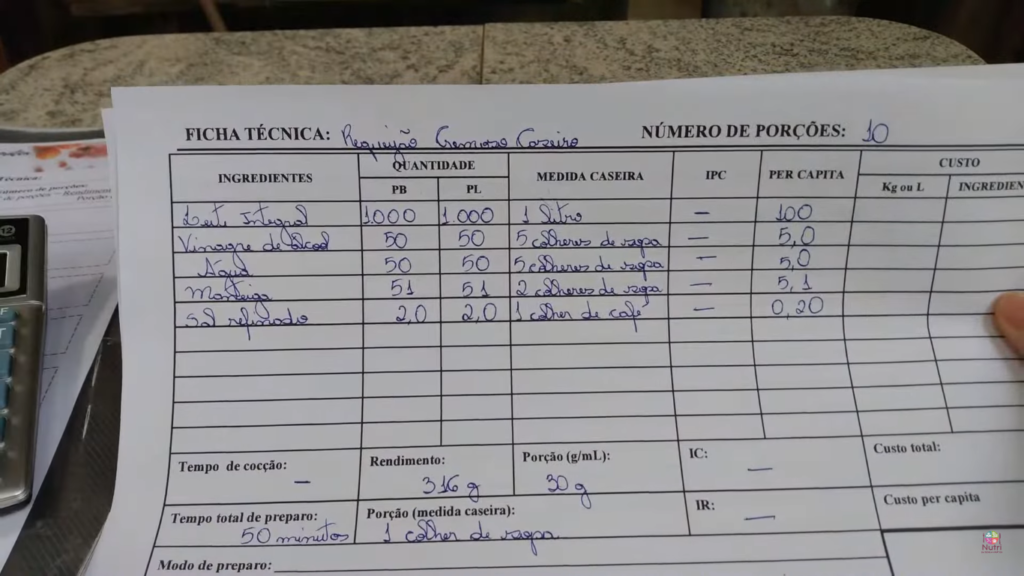 FICHA TÉCNICA: Requeijão Cremoso Caseiro NÚMERO DE PORÇÕES: 10
INGREDIENTES QUANTIDADE MEDIDA CASEIRA IPC PER CAPITA CUSTO
PB PL Kg ou L INGREDIEN
Leite Integral 1000 1.000 1 litro — 100
Vinagre de álcool 50 50 5 colheres de sopa — 5,0
Água 50 50 5 colheres de sopa — 5,0
Manteiga 51 51 2 colheres de sopa — 5,1
Sal refinado 2,0 2,0 1 colher de café — 0,20
Tempo de cocção: — Rendimento: 316 g Porção (g/mL): 30 g IC: — Custo total:
Tempo total de preparo: 50 minutos Porção (medida caseira): 1 colher de sopa IR: — Custo per capita
Modo de preparo:
Nutri